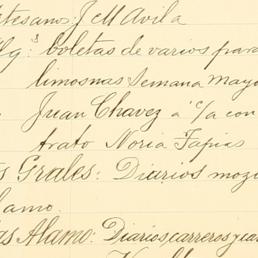 rtesano: J M Avila
lg.s boletas de varios para
limosnas Semana Mayo
Juan Chavez á c/a con
trato Noria Tapias
s Grales: Diarios moz
lamo.
as Alamo: Diarios, carreros y ca